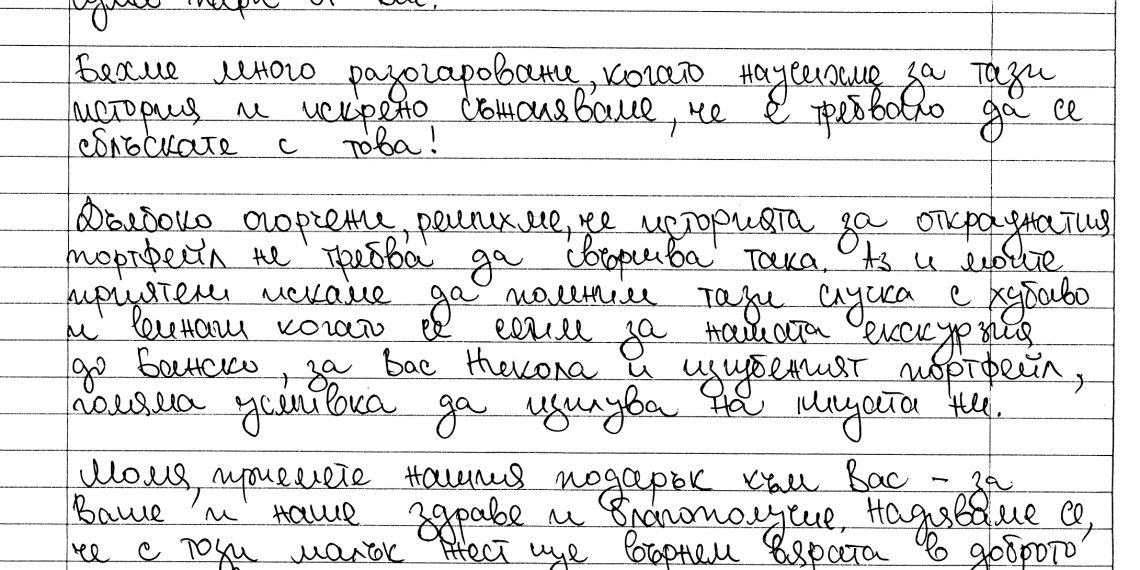 Бяхме много разочаровани, когато научихме за тази
история и искрено съжаляваме, че е трябвало да се
сблъскате с това!
Дълбоко огорчени, решихме, че историята за откраднатия
портфейл не трябва да свършва така. Аз и моите
приятели искаме да помним тази случка с хубаво
и винаги когато се сетим за нашата екскурзия
до Банско, за Вас Никола и изгубеният портфейл,
голяма усмивка да изплува на лицата ни.
Моля, приемете нашия подарък към Вас - за
Ваше и наше здраве и благополучие. Надяваме се,
че с този малък жест ще върнем вярата в доброто